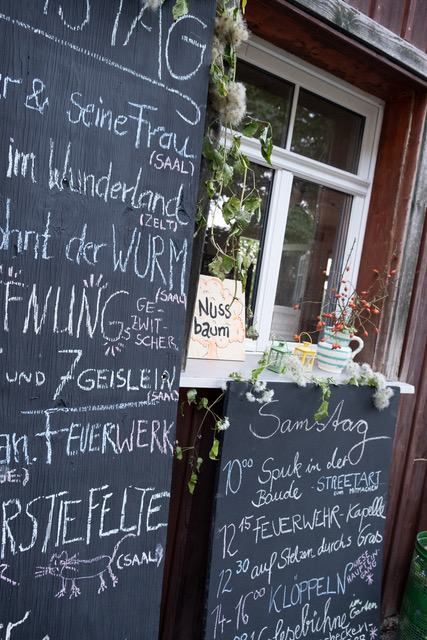 STAG
er & seine Frau
(SAAL)
im Wunderland
(ZELT)
ohnt der WURM
(SAAL)
FFNUNGS
GE-
ZWIT-
SCHER
UND 7 GEISLEIN
(SAAL)
an. FEUERWERK
RSTIEFELTE
(SAAL)
Nuss
baum
Samstag
10⁰⁰ Spuk in der
Baude · STREETART
ZUM MITMACHEN
12¹⁵ FEUERWEHR Kapelle
12³⁰ auf Stelzen durchs Gras
14-16⁰⁰ KLÖPPELN
Lesebühne im
Garten